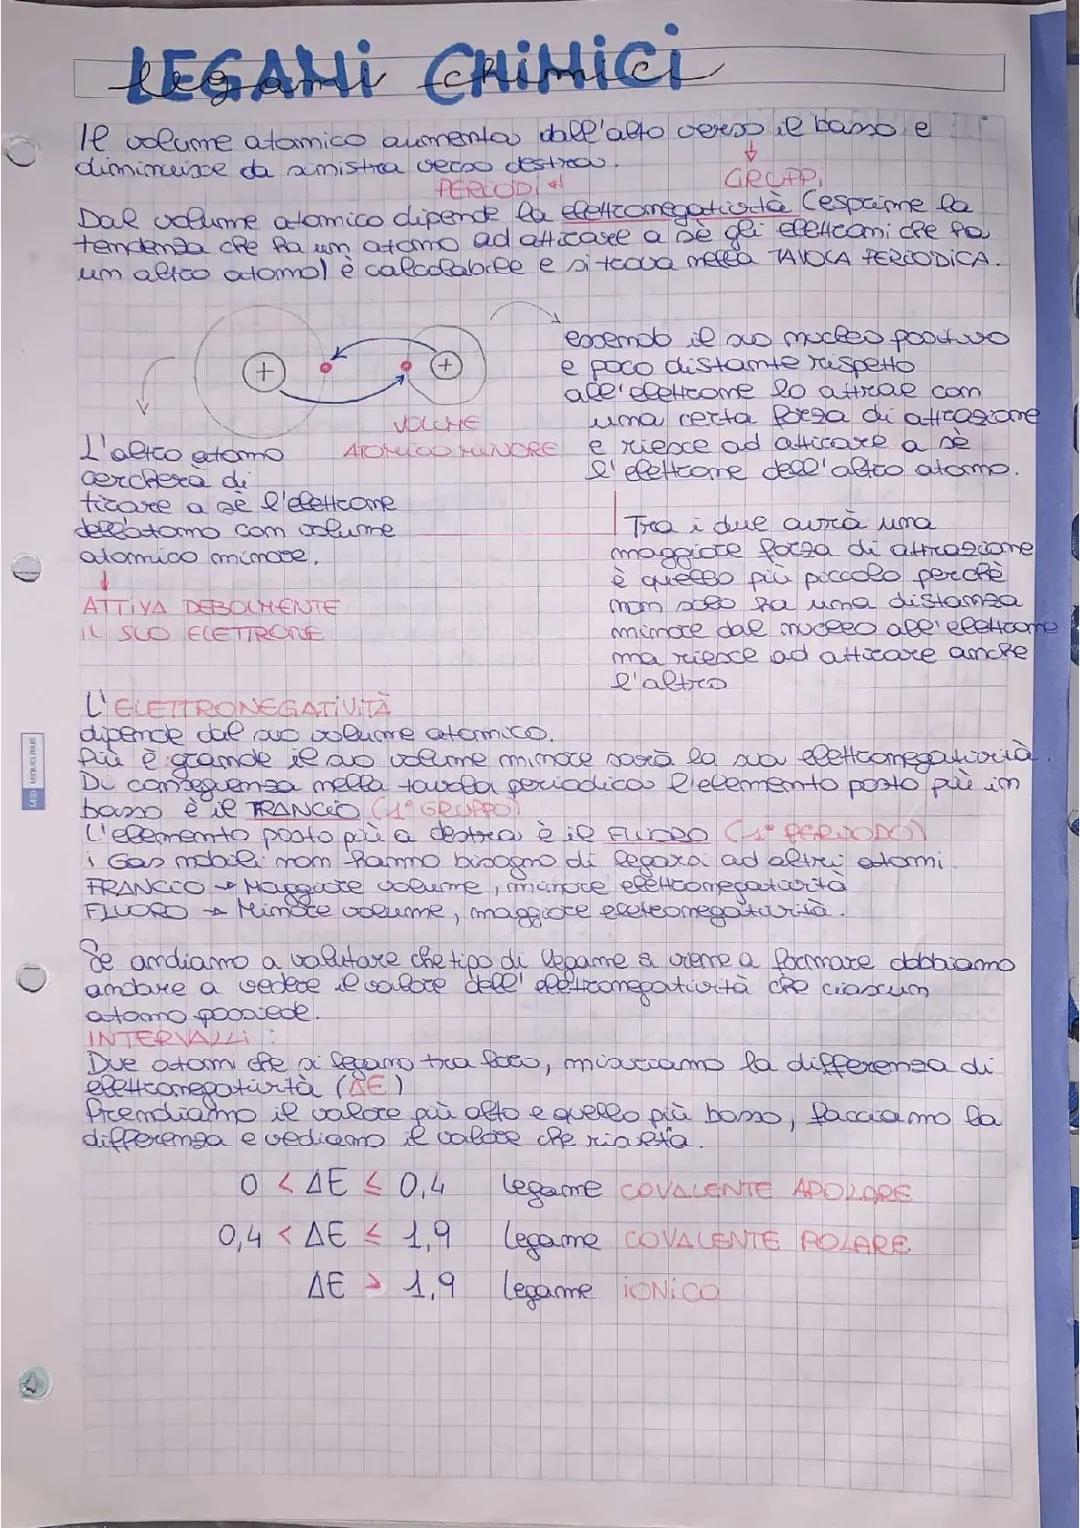 LEGAMi CHiMiCi
legami chimici
Il volume atomico aumenta dall'alto verso il basso e
diminuisce da sinistra verso destra.
PERIODI
GRUPPi
Dal volume atomico dipende la elettronegatività (esprime la
tendenza che ha un atomo ad attirare a sè gli elettroni che ha
un altro atomo) è calcolabile e si trova nella TAVOLA PERIODICA.
+ +
VOLUME
ATOMICO MINORE
essendo il suo nucleo positivo
e poco distante rispetto
all'elettrone lo attrae con
una certa forza di attrazione
e riesce ad attirare a sè
l'elettrone dell'altro atomo.
L'altro atomo
cercherà di
tirare a sè l'elettrone
dell'atomo con volume
atomico minore.
ATTIVA DEBOLMENTE
IL SUO ELETTRONE
Tra i due avrà una
maggiore forza di attrazione
è quello più piccolo perchè
non solo ha una distanza
minore dal nucleo all'elettrone
ma riesce ad attirare anche
l'altro
L'ELETTRONEGATIVITÀ
dipende dal suo volume atomico.
Più è grande il suo volume minore sarà la sua elettronegatività.
Di conseguenza nella tavola periodica l'elemento posto più in
basso è il FRANCIO (1° GRUPPO)
L'elemento posto più a destra è il FLUORO (1° PERIODO)
i Gas nobili non hanno bisogno di legarsi ad altri atomi.
FRANCIO → Maggiore volume, minore elettronegatività
FLUORO → Minore volume, maggiore elettronegatività.
Se andiamo a valutare che tipo di legame si viene a formare dobbiamo
andare a vedere il valore dell'elettronegatività che ciascun
atomo possiede.
INTERVALLi :
Due atomi che si legano tra loro, misuriamo la differenza di
elettronegatività (ΔE)
Prendiamo il valore più alto e quello più basso, facciamo la
differenza e vediamo il valore che risulta.
0 < ΔE ≤ 0,4 legame COVALENTE APOLARE
0,4 < ΔE ≤ 1,9 legame COVALENTE POLARE
ΔE > 1,9 legame iONiCO